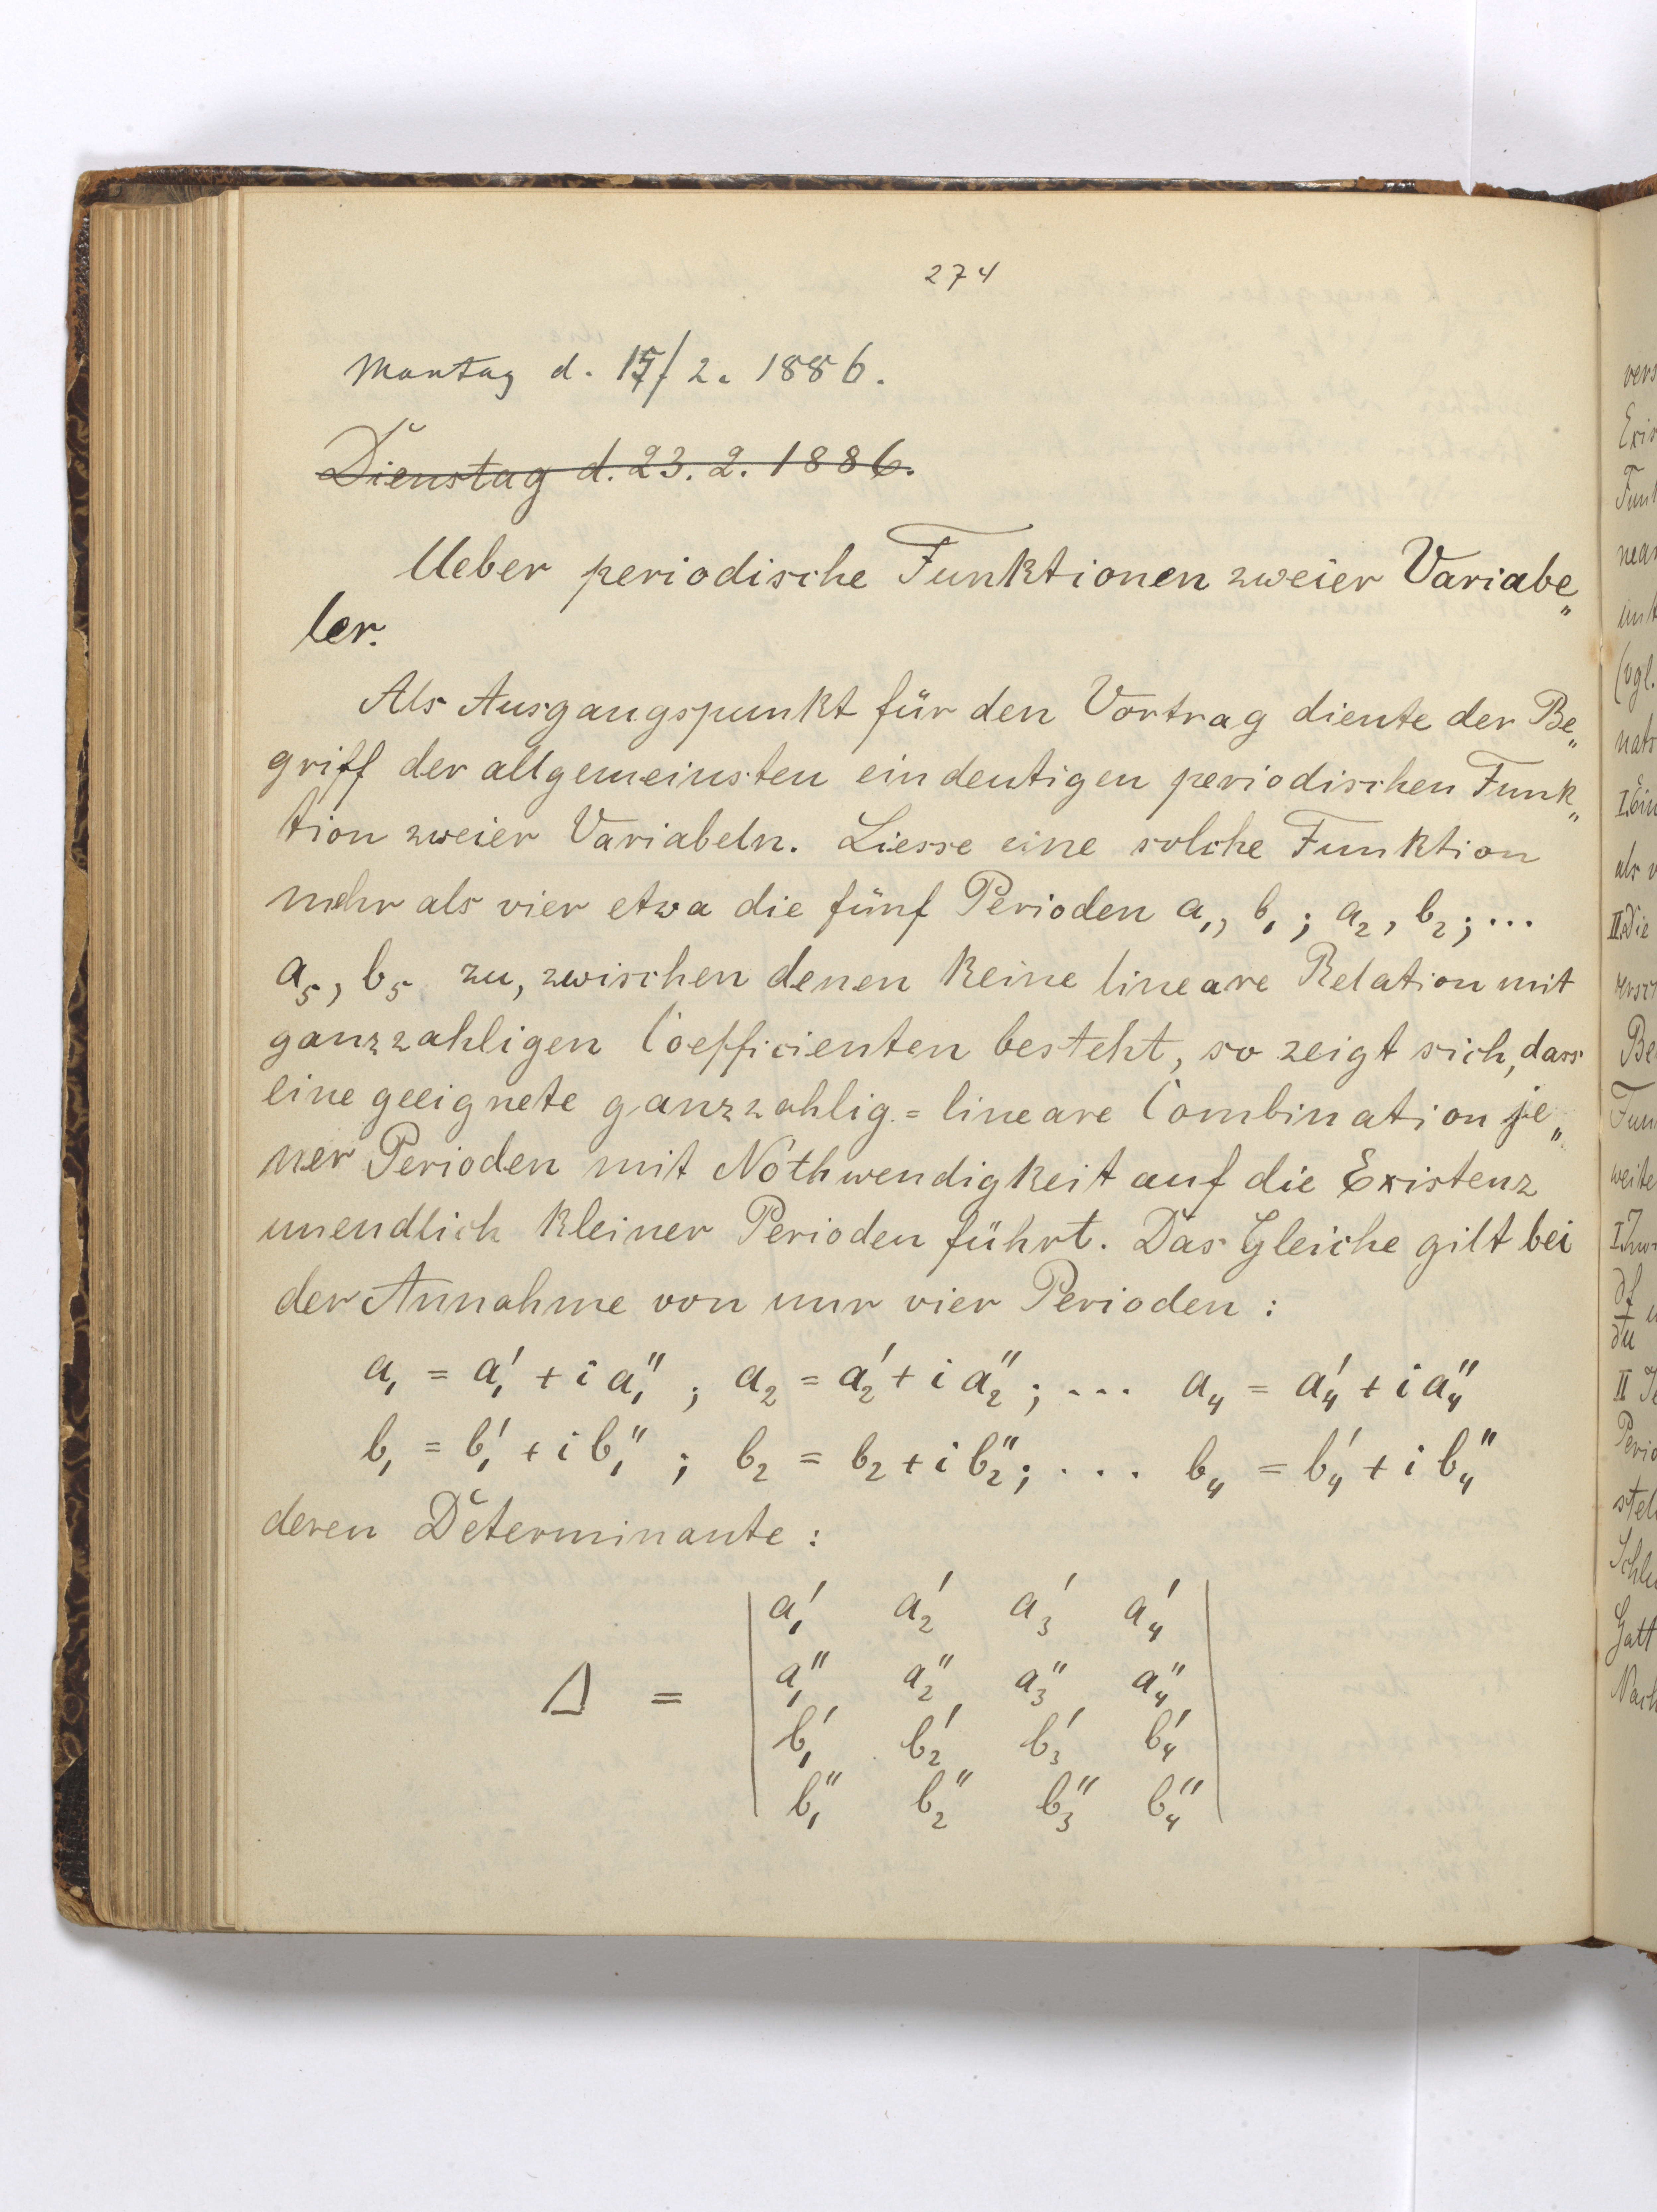 274
Montag d. 15/2. 1886.
Dienstag d. 23. 2. 1886.
Ueber periodische Funktionen zweier Variabe„
ler.
Als Ausgangspunkt für den Vortrag diente der Be„
griff der allgemeinsten eindeutigen periodischen Funk„
tion zweier Variabeln. Liesse eine solche Funktion
mehr als vier etwa die fünf Perioden a₁, b₁; a₂, b₂; ...
a₅, b₅ zu, zwischen denen keine lineare Relation mit
ganzzahligen Coefficienten besteht, so zeigt sich, dass
eine geeignete ganzzahlig = lineare Combination je„
ner Perioden mit Nothwendigkeit auf die Existenz
unendlich kleiner Perioden führt. Das Gleiche gilt bei
der Annahme von nur vier Perioden :
a₁ = a₁' + i a₁'' ; a₂ = a₂' + i a₂'' ; ... a₄ = a₄' + i a₄''
b₁ = b₁' + i b₁'' ; b₂ = b₂ + i b₂'' ; .... b₄ = b₄' + i b₄''
deren Determinante :
a₁' a₂' a₃' a₄'
Δ = a₁'' a₂'' a₃'' a₄''
b₁' b₂' b₃' b₄'
b₁'' b₂'' b₃'' b₄''